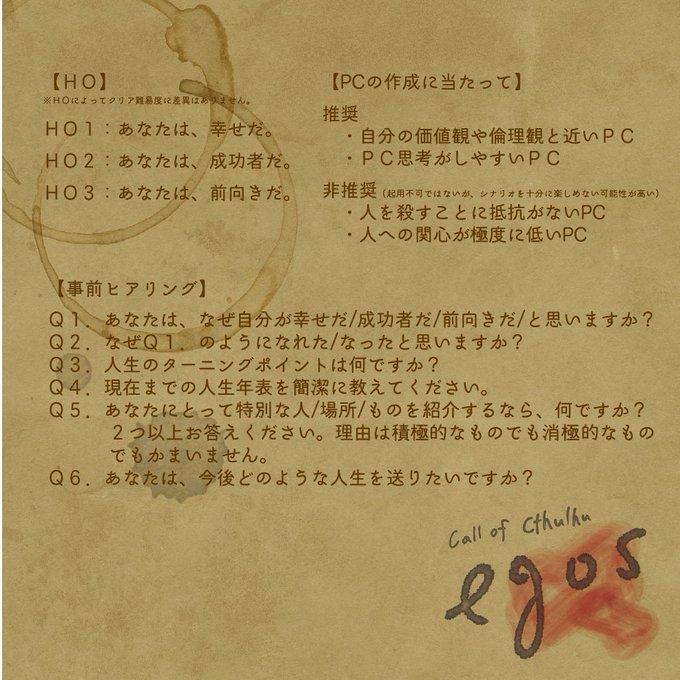 【ＨＯ】
※ＨＯによってクリア難易度に差異はありません。
ＨＯ１：あなたは、幸せだ。
ＨＯ２：あなたは、成功者だ。
ＨＯ３：あなたは、前向きだ。
【PCの作成に当たって】
推奨
・自分の価値観や倫理観と近いＰＣ
・ＰＣ思考がしやすいＰＣ
非推奨（起用不可ではないが、シナリオを十分に楽しめない可能性が高い）
・人を殺すことに抵抗がないPC
・人への関心が極度に低いPC
【事前ヒアリング】
Ｑ１．あなたは、なぜ自分が幸せだ/成功者だ/前向きだ/と思いますか？
Ｑ２．なぜＱ１．のようになれた/なったと思いますか？
Ｑ３．人生のターニングポイントは何ですか？
Ｑ４．現在までの人生年表を簡潔に教えてください。
Ｑ５．あなたにとって特別な人/場所/ものを紹介するなら、何ですか？
２つ以上お答えください。理由は積極的なものでも消極的なもの
でもかまいません。
Ｑ６．あなたは、今後どのような人生を送りたいですか？
Call of Cthulhu
egos